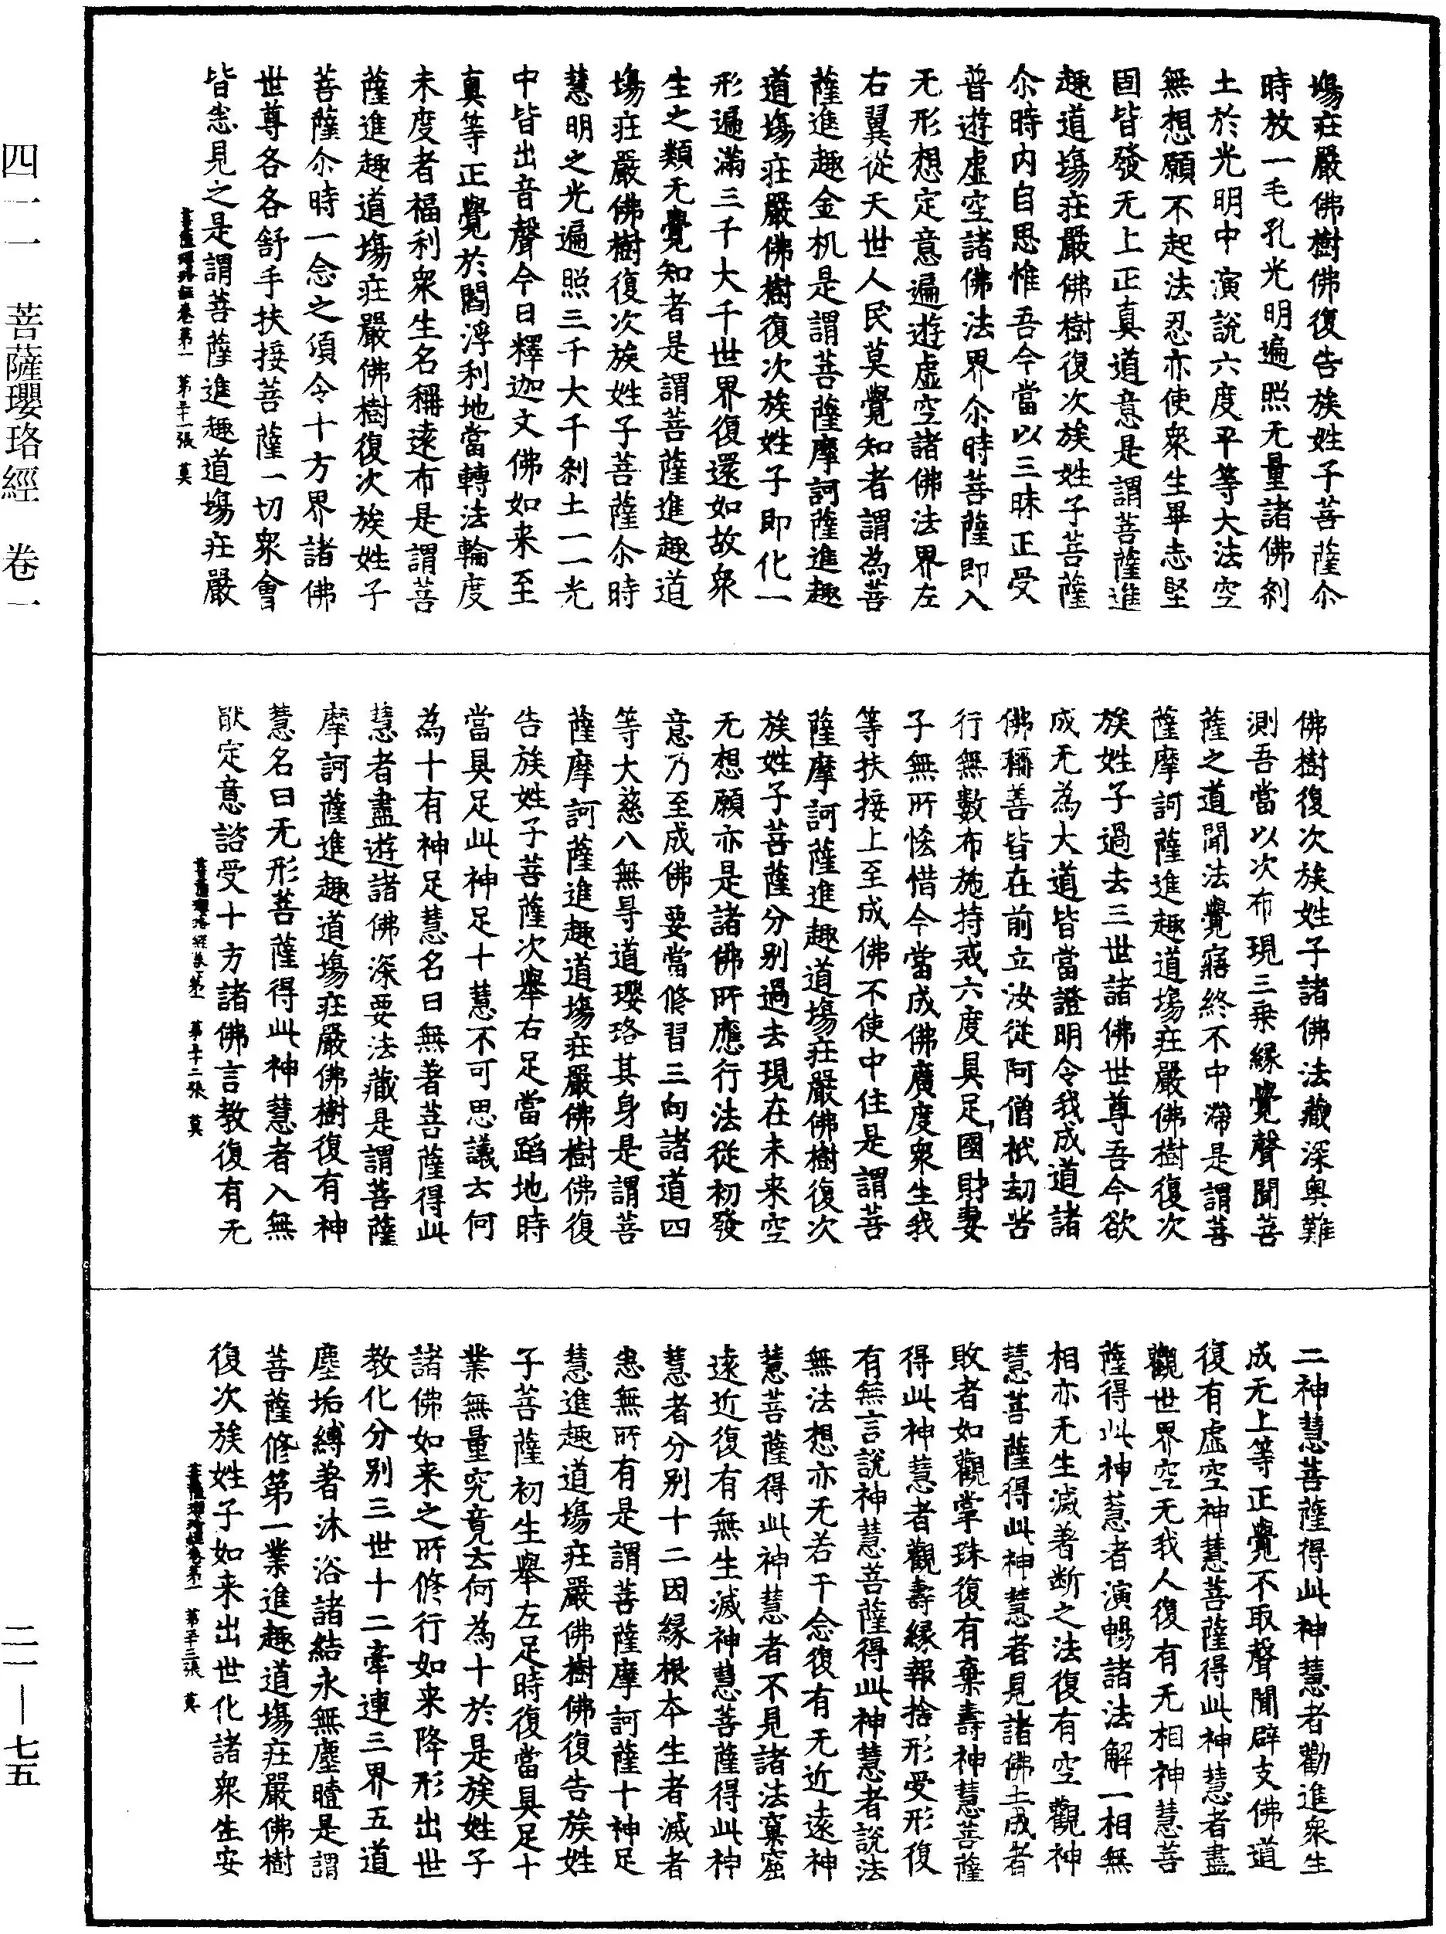 四一一　菩薩瓔珞經　卷一
塲莊嚴佛樹佛復告族姓子菩薩尒
時放一毛孔光明遍照无量諸佛剎
土於光明中演說六度平等大法空
無想願不起法忍亦使衆生畢志堅
固皆發无上正真道意是謂菩薩進
趣道塲莊嚴佛樹復次族姓子菩薩
尒時内自思惟吾今當以三昧正受
普遊虛空諸佛法界尒時菩薩即入
无形想定意遍遊虛空諸佛法界左
右翼從天世人民莫覺知者謂為菩
薩進趣金机是謂菩薩摩訶薩進趣
道塲莊嚴佛樹復次族姓子即化一
形遍滿三千大千世界復還如故衆
生之類无覺知者是謂菩薩進趣道
塲莊嚴佛樹復次族姓子菩薩尒時
慧明之光遍照三千大千剎土一一光
中皆出音聲今日釋迦文佛如来至
真等正覺於閻浮利地當轉法輪度
未度者福利衆生名稱遠布是謂菩
薩進趣道塲莊嚴佛樹復次族姓子
菩薩尒時一念之頃令十方界諸佛
世尊各各舒手扶接菩薩一切衆會
皆悉見之是謂菩薩進趣道塲莊嚴
菩薩瓔珞經卷第一　第二十一張　莫
佛樹復次族姓子諸佛法藏深奥難
測吾當以次布現三乗緣覺聲聞菩
薩之道聞法覺寤終不中滯是謂菩
薩摩訶薩進趣道塲莊嚴佛樹復次
族姓子過去三世諸佛世尊吾今欲
成无為大道皆當證明令我成道諸
佛稱善皆在前立汝從阿僧祇劫苦
行無數布施持戒六度具足國財妻
子無所悋惜今當成佛廣度衆生我
等扶接上至成佛不使中住是謂菩
薩摩訶薩進趣道塲莊嚴佛樹復次
族姓子菩薩分别過去現在未来空
无想願亦是諸佛所應行法從初發
意乃至成佛要當修習三向諸道四
等大慈八無导道瓔珞其身是謂菩
薩摩訶薩進趣道塲莊嚴佛樹佛復
告族姓子菩薩次舉右足當蹈地時
當具足此神足十慧不可思議云何
為十有神足慧名曰無著菩薩得此
慧者盡遊諸佛深要法藏是謂菩薩
摩訶薩進趣道塲莊嚴佛樹復有神
慧名曰无形菩薩得此神慧者入無
猒定意諮受十方諸佛言教復有无
菩薩瓔珞經卷第一　第二十二張　莫
二神慧菩薩得此神慧者勸進衆生
成无上等正覺不取聲聞辟支佛道
復有虛空神慧菩薩得此神慧者盡
觀世界空无我人復有无相神慧菩
薩得此神慧者演暢諸法解一相無
相亦无生滅著断之法復有空觀神
慧菩薩得此神慧者見諸佛土成者
敗者如觀掌珠復有棄壽神慧菩薩
得此神慧者觀壽緣報捨形受形復
有無言說神慧菩薩得此神慧者說法
無法想亦无若干念復有无近遠神
慧菩薩得此神慧者不見諸法窠窟
遠近復有無生滅神慧菩薩得此神
慧者分别十二因緣根本生者滅者
悉無所有是謂菩薩摩訶薩十神足
慧進趣道塲莊嚴佛樹佛復告族姓
子菩薩初生舉左足時復當具足十
業無量究竟云何為十於是族姓子
諸佛如来之所修行如来降形出世
教化分别三世十二牽連三界五道
塵垢縛著沐浴諸結永無塵曀是謂
菩薩修第一業進趣道塲莊嚴佛樹
復次族姓子如来出世化諸衆生安
菩薩瓔珞經卷第一　第二十三張　莫
二一—七五